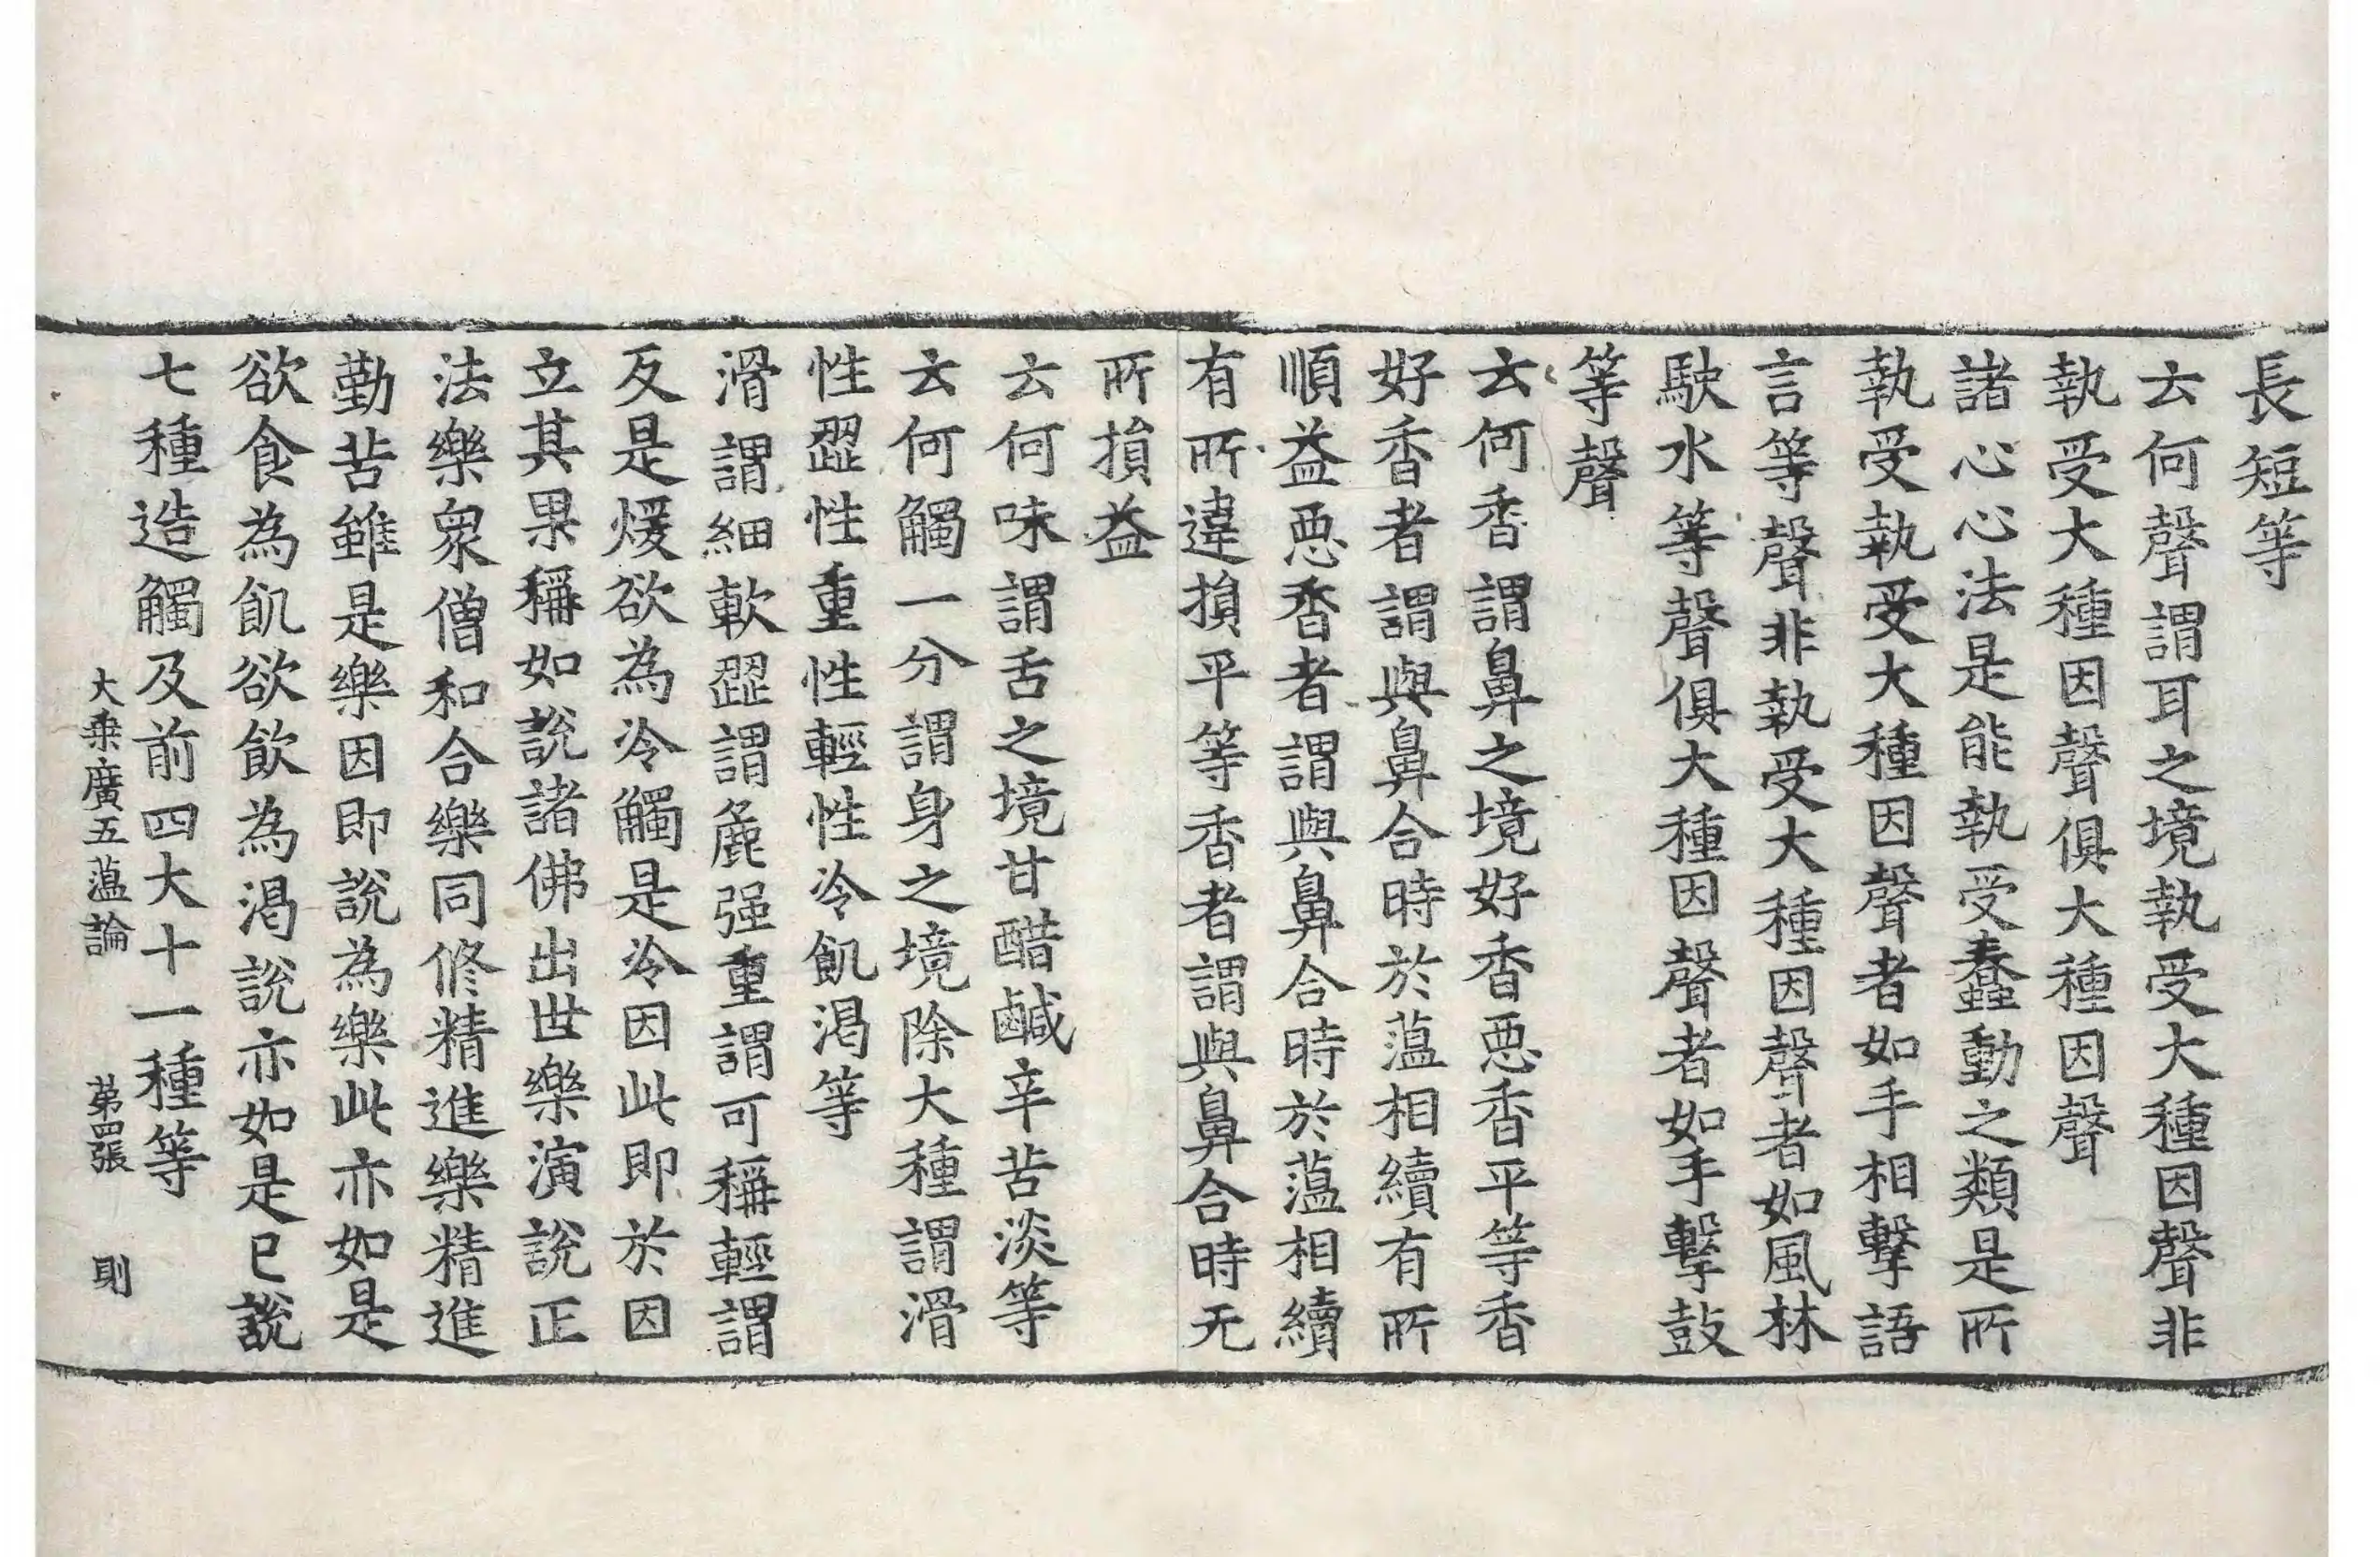 長短等
云何聲謂耳之境執受大種因聲非
執受大種因聲俱大種因聲
諸心心法是能執受蠢動之類是所
執受執受大種因聲者如手相擊語
言等聲非執受大種因聲者如風林
駛水等聲俱大種因聲者如手擊鼓
等聲
云何香謂鼻之境好香惡香平等香
好香者謂與鼻合時於薀相續有所
順益惡香者謂與鼻合時於薀相續
有所違損平等香者謂與鼻合時无
所損益
云何味謂舌之境甘醋鹹辛苦淡等
云何觸一分謂身之境除大種謂滑
性澀性重性輕性冷飢渴等
滑謂細軟澀謂麁强重謂可稱輕謂
反是煖欲為冷觸是冷因此即於因
立其果稱如說諸佛出世樂演說正
法樂衆僧和合樂同修精進樂精進
勤苦雖是樂因即說為樂此亦如是
欲食為飢欲飲為渴說亦如是已說
七種造觸及前四大十一種等
大乗廣五薀論 苐四張 則